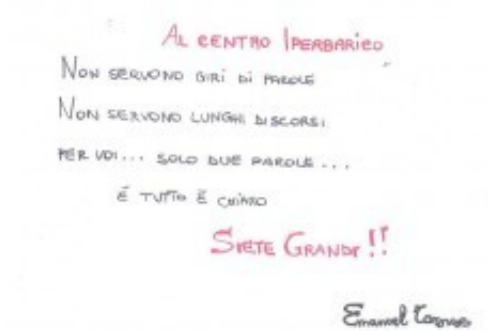 AL CENTRO IPERBARICO
NON SERVONO GIRI DI PAROLE
NON SERVONO LUNGHI DISCORSI
PER VOI... SOLO DUE PAROLE...
É TUTTO É CHIARO
SIETE GRANDI!!
Emanuel